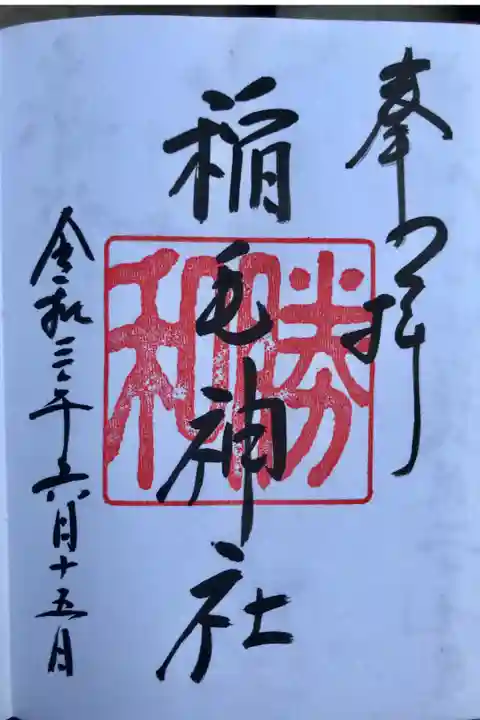 奉拝
稲毛神社
勝
和
令和三年六月十五日